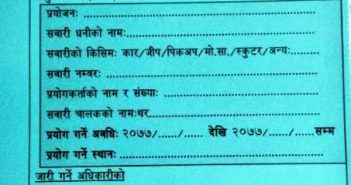 प्रयोजनः ........................................
सवारी धनीको नामः ........................................
सवारीको किसिमः कार/जीप/पिकअप/मो.सा./स्कुटर/अन्यः........
सवारी नम्बरः ........................................
प्रयोगकर्ताको नाम र संख्याः ........................................
सवारी चालकको नामःथर........................................
प्रयोग गर्ने अवधिः २०७७/....../...... देखि २०७७/....../...... सम्म
प्रयोग गर्ने स्थानः........................................
जारी गर्ने अधिकारीको